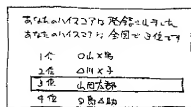 あなたのハイスコアは登録されました。
あなたのハイスコアは全国で3位です
1位 ○山×男
2位 ○川×子
3位 山田太郎
4位 ○島△助